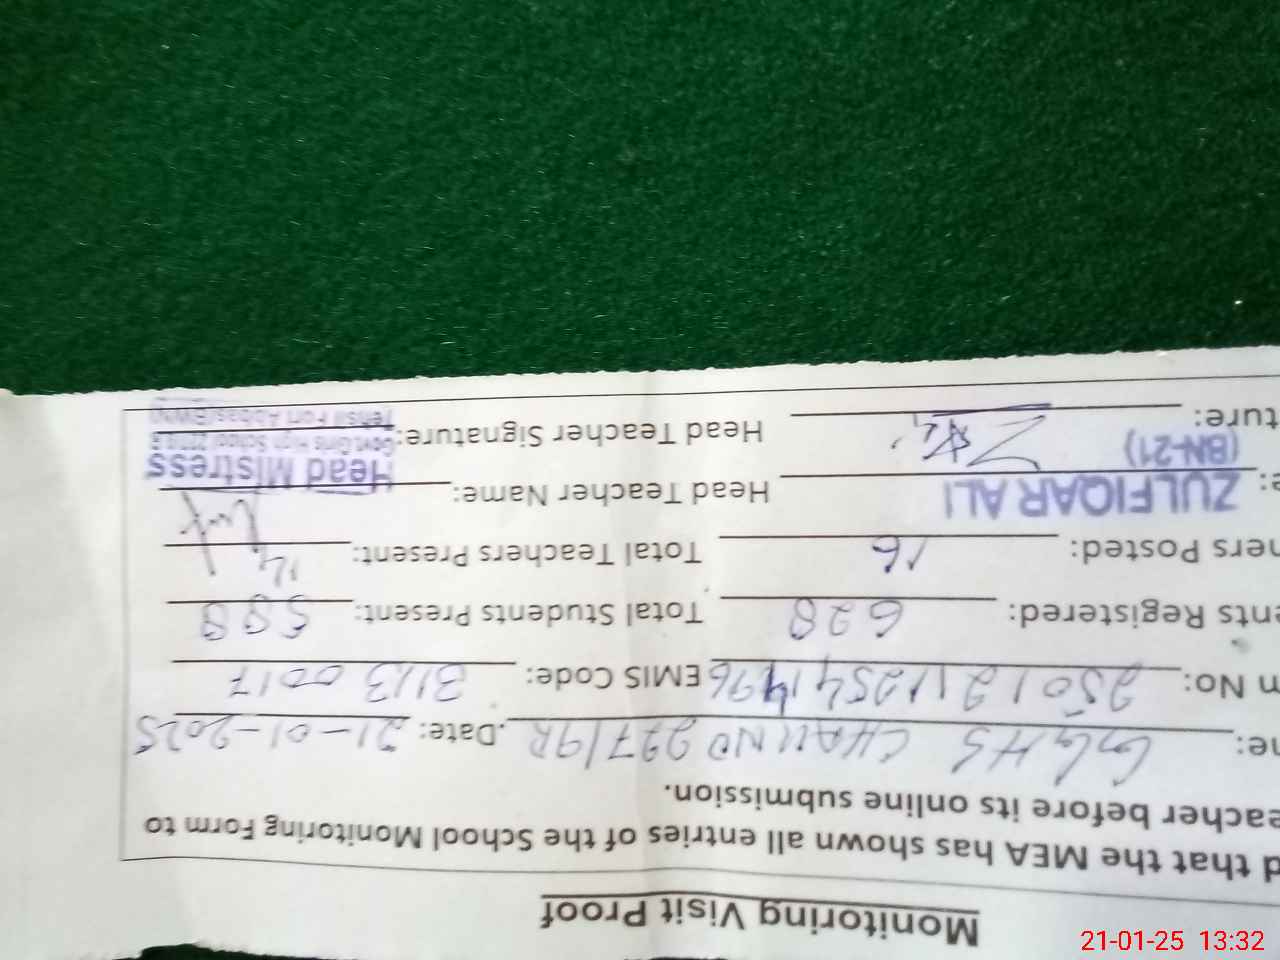 Monitoring Visit Proof
d that the MEA has shown all entries of the School Monitoring Form to
eacher before its online submission.
ne: GGHS CHAK NO 227/9R. Date: 21-01-2025
n No: EMIS Code: 31130017
ents Registered: 628 Total Students Present: 588
hers Posted: 16 Total Teachers Present: 14
e: ZULFIQAR ALI Head Teacher Name:
(BN-21)
Head Mistress
ture: Head Teacher Signature:
Govt. Girls High School
Tehsil Fort Abbas
21-01-25 13:32